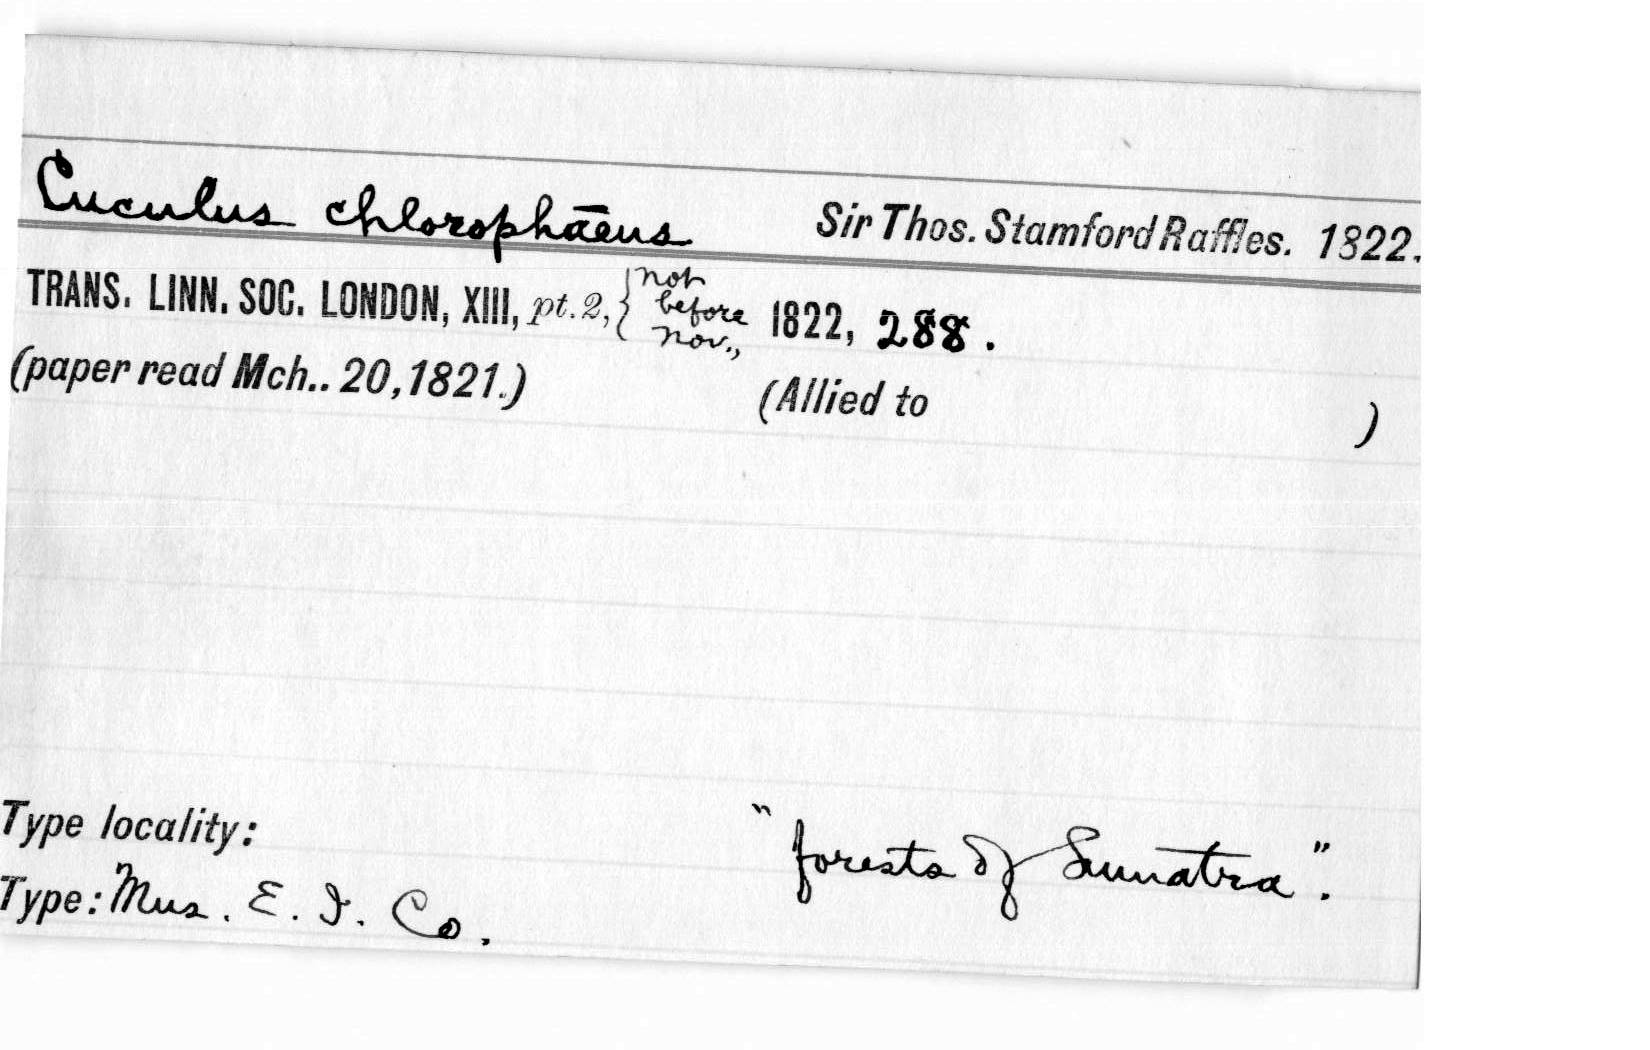 Cuculus chlorophāeus Sir Thos. Stamford Raffles. 1822.
TRANS. LINN. SOC. LONDON, XIII, pt. 2, { not before Nov., 1822, 288.
(paper read Mch.. 20, 1821.) (Allied to )
Type locality: "forests of Sumatra".
Type: Mus. E. I. Co.